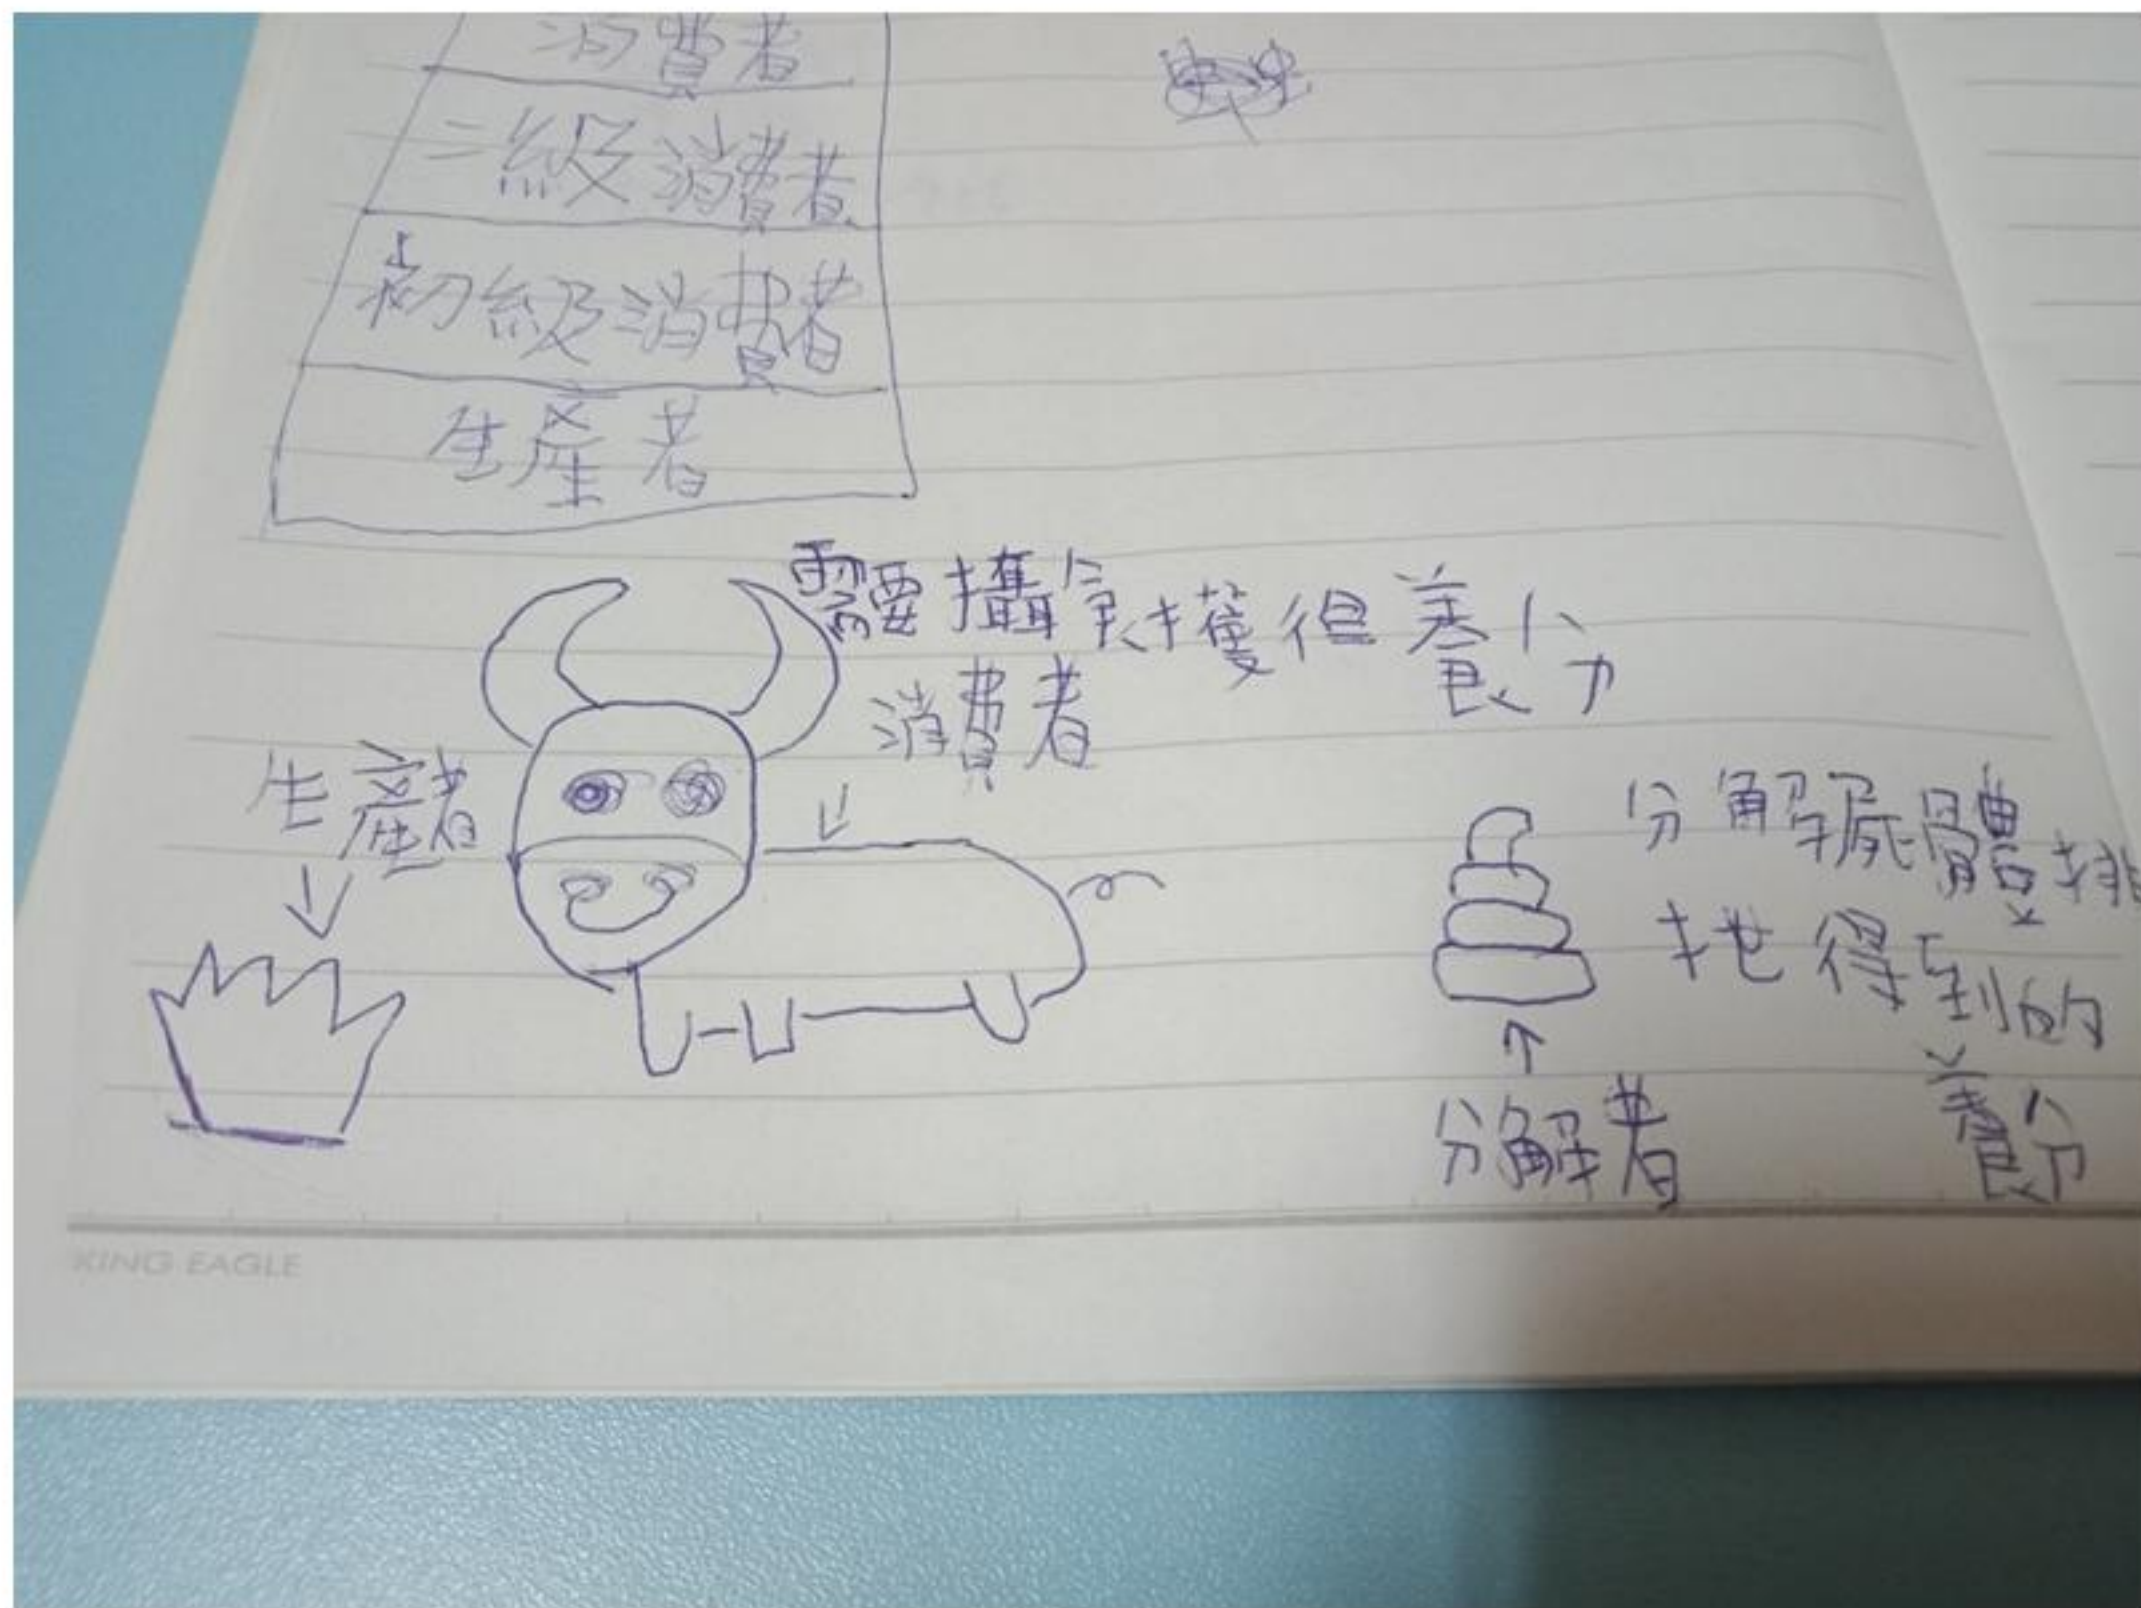 消費者
二級消費者
初級消費者
生產者
需要攝氣獲得養分
消費者
生產者
分解屍體排
地得到的
養分
分解者
KING EAGLE